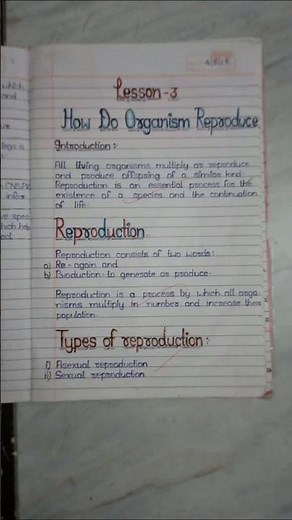 Lesson-3
How Do Organism Reproduce
Introduction:
All living organisms multiply or reproduce
and produce offspring of a similar kind.
Reproduction is an essential process for the
existence of a species and the continuation
of life.
Reproduction
Reproduction consists of two words:
a) Re - again and
b) Production: to generate or produce.
Reproduction is a process by which all orga
nisms multiply in number and increase their
population.
Types of reproduction:
i) Asexual reproduction
ii) Sexual reproduction